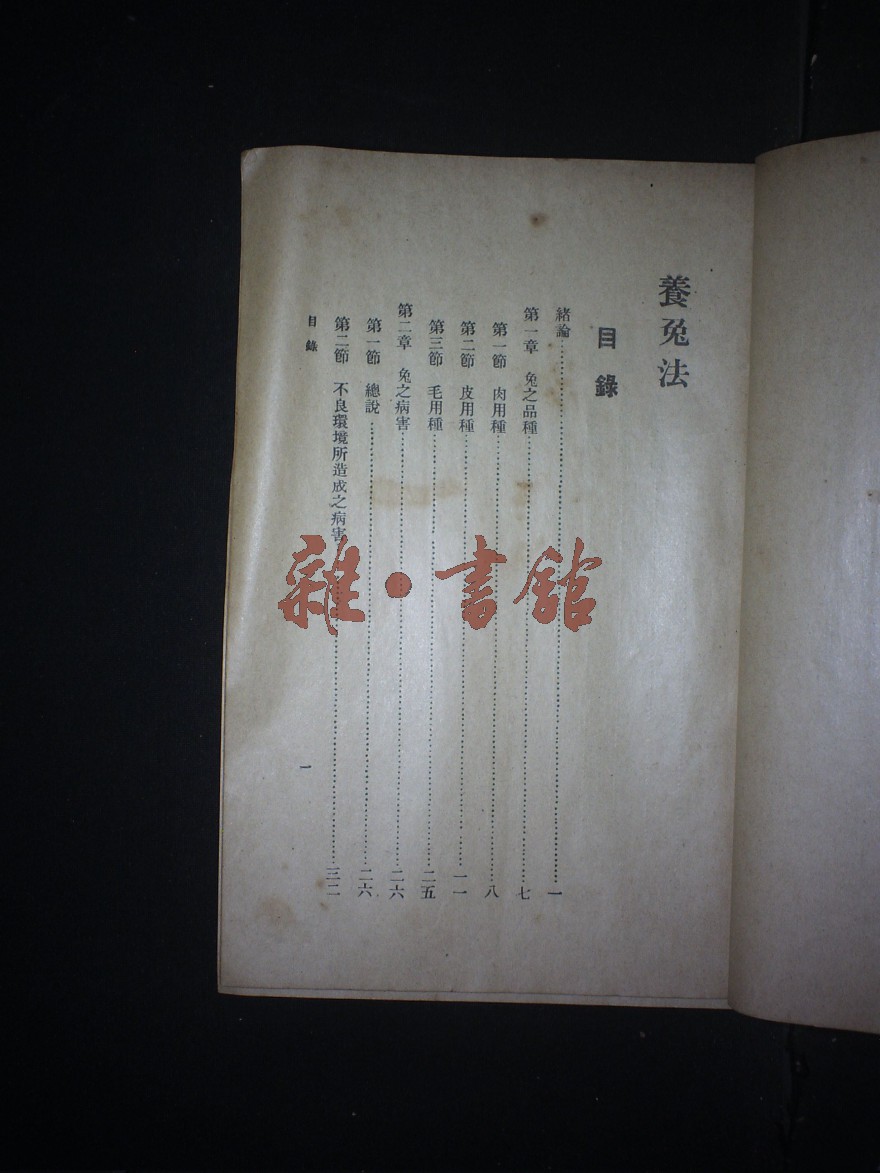 養兔法
目錄
緒論……一
第一章 兔之品種……七
第一節 肉用種……八
第二節 皮用種……一一
第三節 毛用種……二五
第二章 兔之病害……二六
第一節 總說……二六
第二節 不良環境所造成之病害……三二
目錄
一
雜·書館